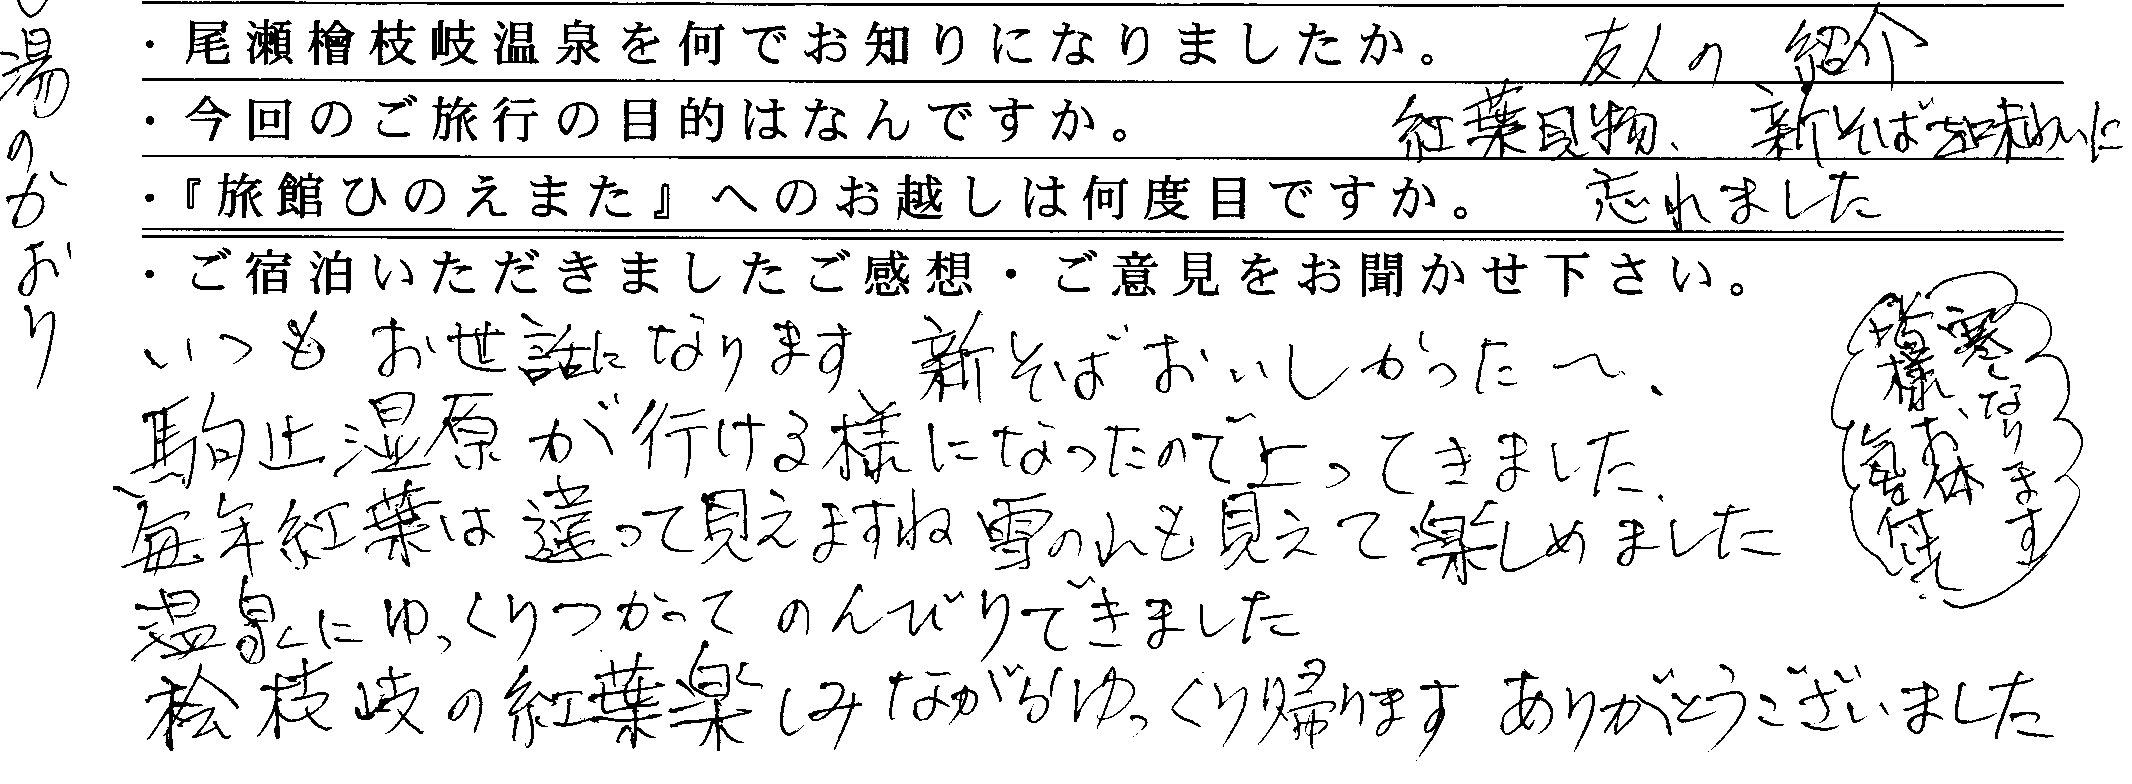 湯のかおり
・尾瀬檜枝岐温泉を何でお知りになりましたか。 友人の 紹介
・今回のご旅行の目的はなんですか。 紅葉見物、新そばを味わいに
・『旅館ひのえまた』へのお越しは何度目ですか。 忘れました
・ご宿泊いただきましたご感想・ご意見をお聞かせ下さい。
いつも お世話になります 新そば おいしかった〜、
駒止湿原が行ける様になったので上ってきました、
毎年紅葉は違って見えますね 雪のれも見えて楽しめました
温泉にゆっくりつかって のんびりできました
桧枝岐の紅葉楽しみながらゆっくり帰ります ありがとうございました
寒くなります
皆様 お体
気を付けて